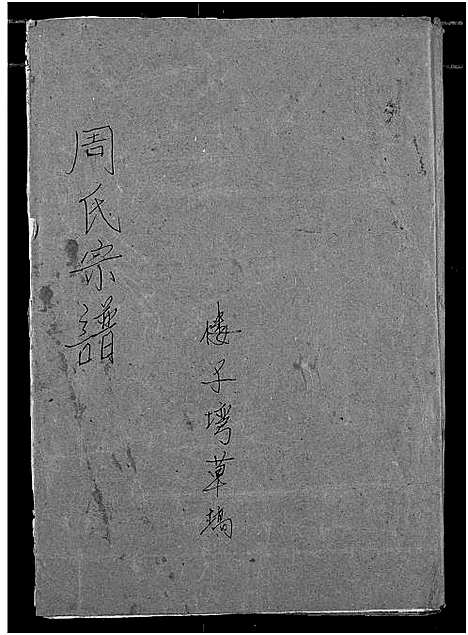 周氏宗譜
楼子塆草稿